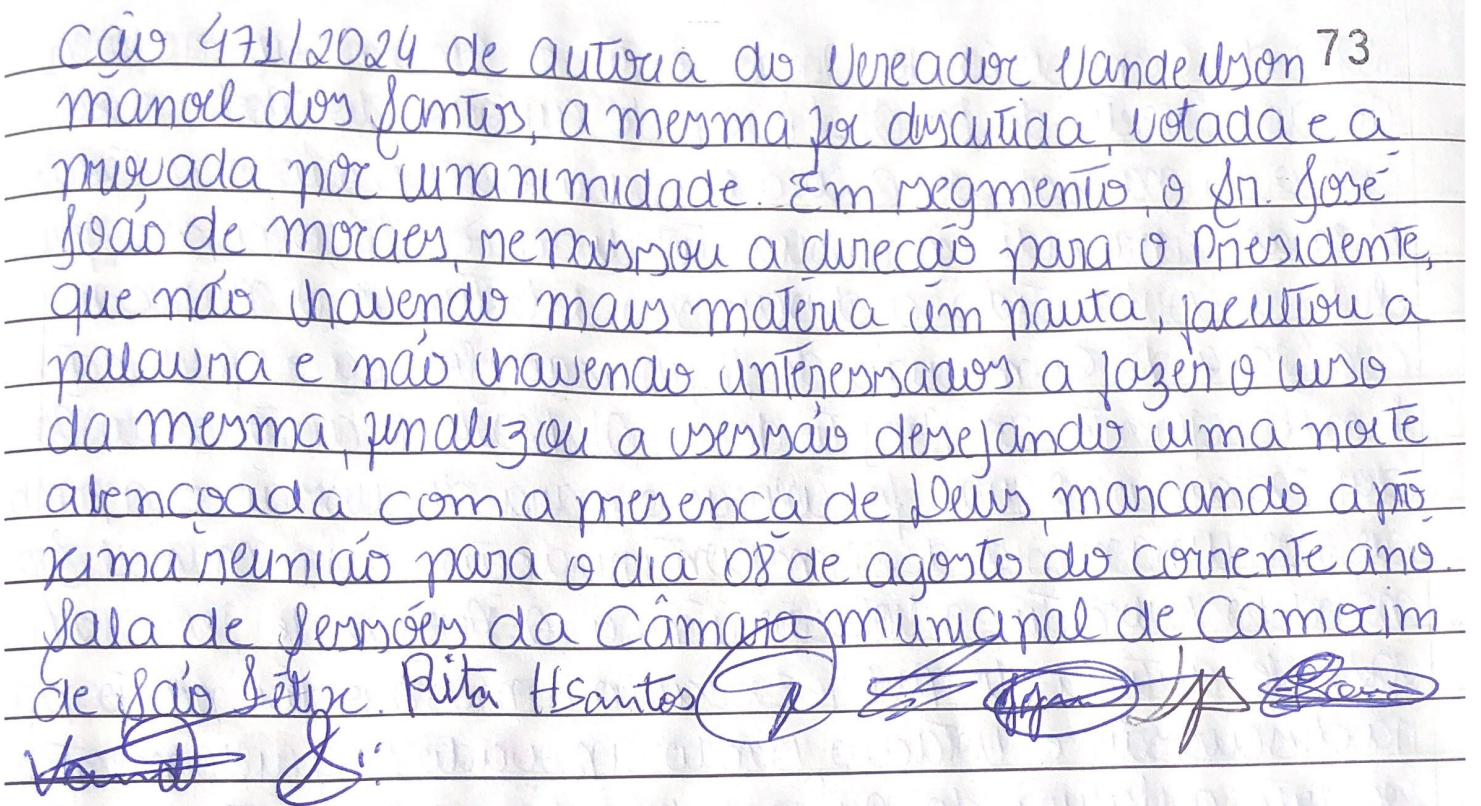 cão 471/2024 de autoria do Vereador Vandeilson 73
manoel dos Santos, a mesma foi discutida, votada e a
provada por unanimidade. Em segmento, o Sr. José
João de moraes, repassou a direcão para o Presidente,
que não havendo mais matéria em pauta, facultou a
palavra e não havendo interessados a fazer o uso
da mesma, finalizou a sessão desejando uma noite
abencoada com a presenca de Deus, marcando a pró
xima reunião para o dia 08 de agosto do corrente ano.
Sala de Sessões da Câmara municipal de Camocim
de São Félix. Rita HSantos